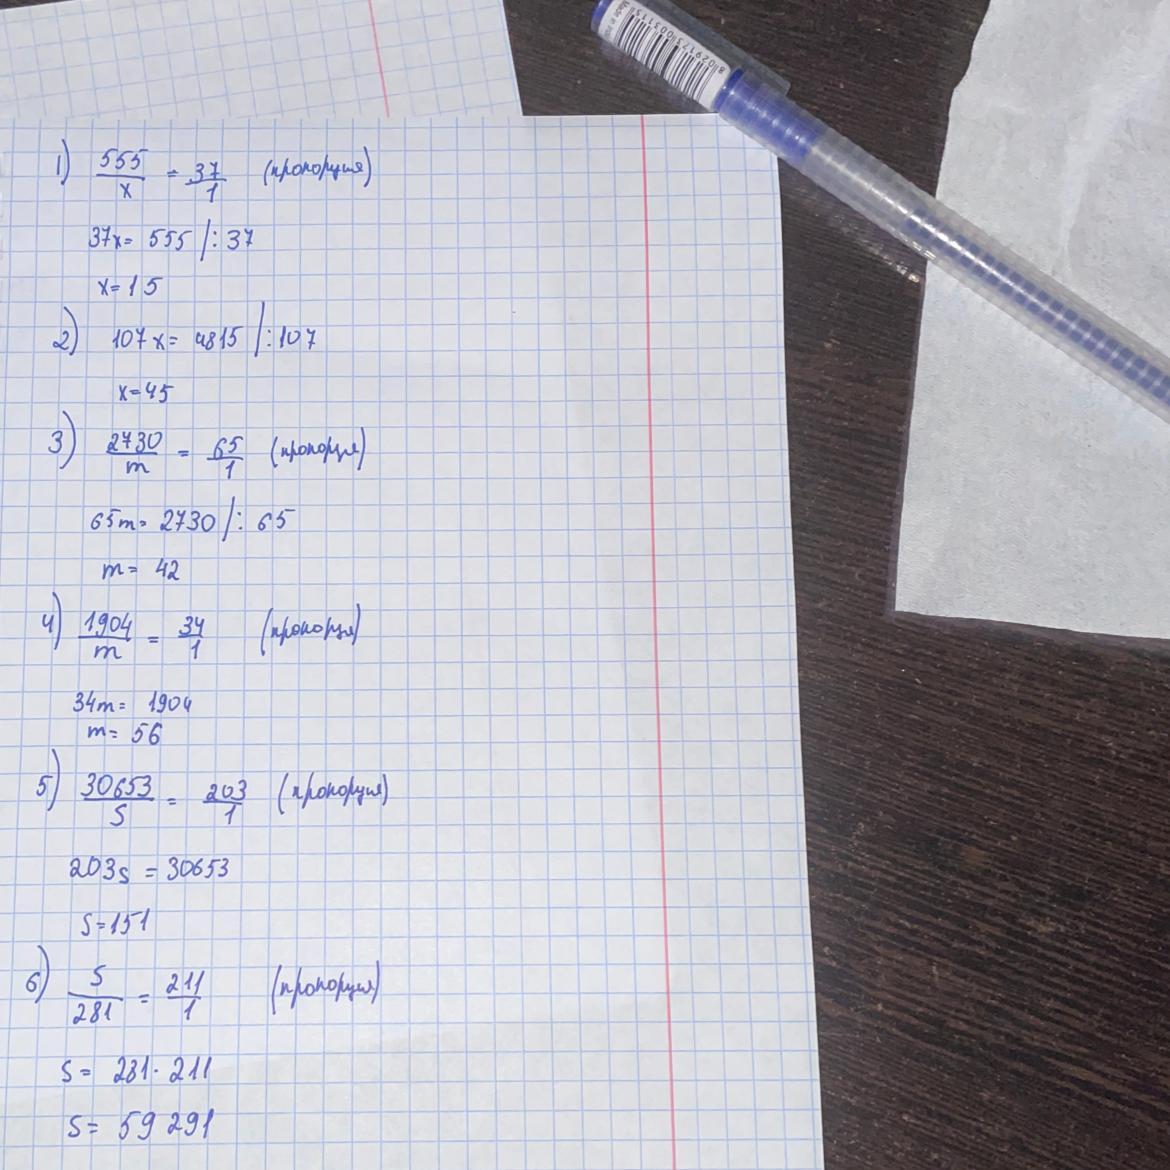 Made in
8029173003115
1) 555/x = 37/1 (пропорция)
37x = 555 |: 37
x = 15
2) 107x = 4815 |: 107
x = 45
3) 2730/m = 65/1 (пропорця)
65m = 2730 |: 65
m = 42
4) 1904/m = 34/1 (пропорця)
34m = 1904
m = 56
5) 30653/S = 203/1 (пропорция)
203s = 30653
S = 151
6) S/281 = 211/1 (пропорция)
S = 281 · 211
S = 59 291